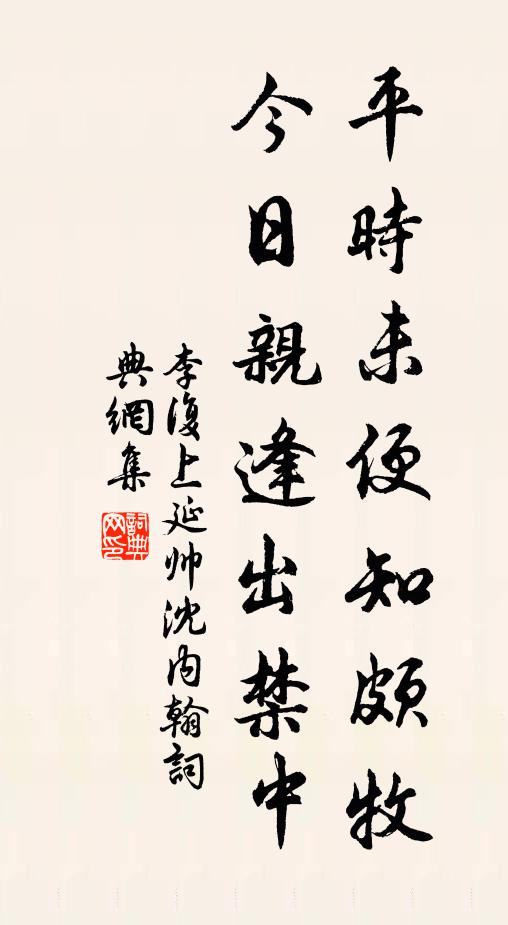 平時未便知頗牧
今日親逢出禁中
李復上延帅沈内翰詞
典網集
詞典網印